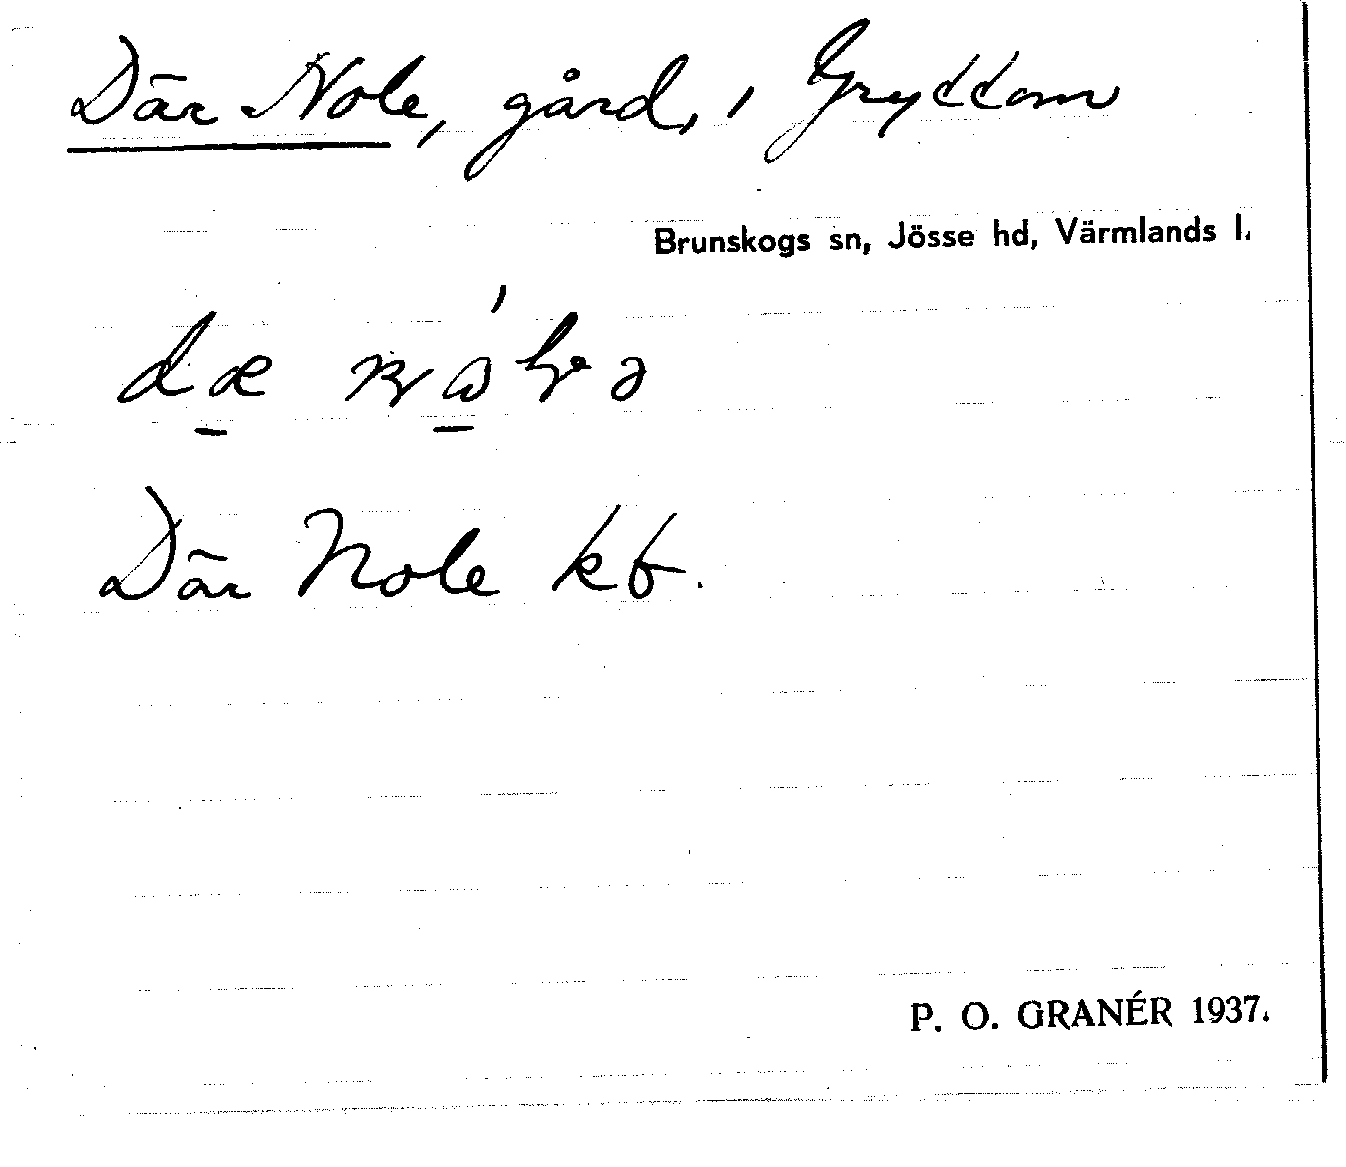 Där Nole, gård, i Gryttom
Brunskogs sn, Jösse hd, Värmlands l.
Där Nole kb.
P. O. GRANÉR 1937.